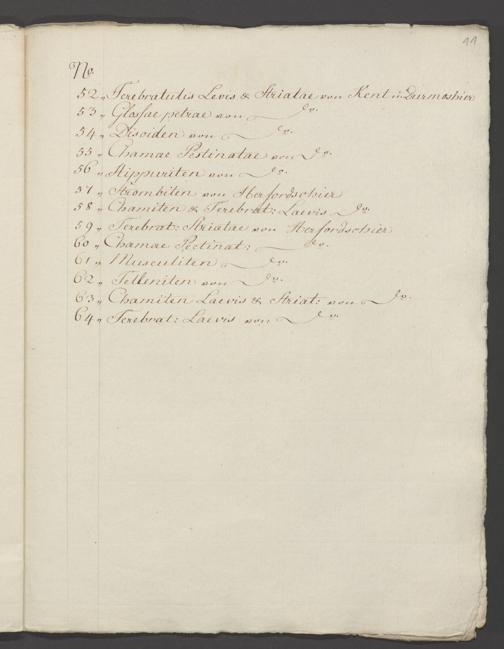 44
No.
52 „ Terebratutis Levis & Striatae von Kent in Darmoshier
53 „ Glossae petrae von do.
54 „ Disciden von do.
55 „ Chamae Pectinatae von do.
56 „ Hippuriten von do.
57 „ Strombiten von Herfordschier
58 „ Chamiten & Terebrat: Laevis do.
59 „ Terebrat: Striatae von Herfordschier
60 „ Chamae Pectinat: do.
61 „ Musculiten do.
62 „ Telleniten von do.
63 „ Chamiten Laevis & Striat: von do.
64 „ Terebrat: Laevis von do.